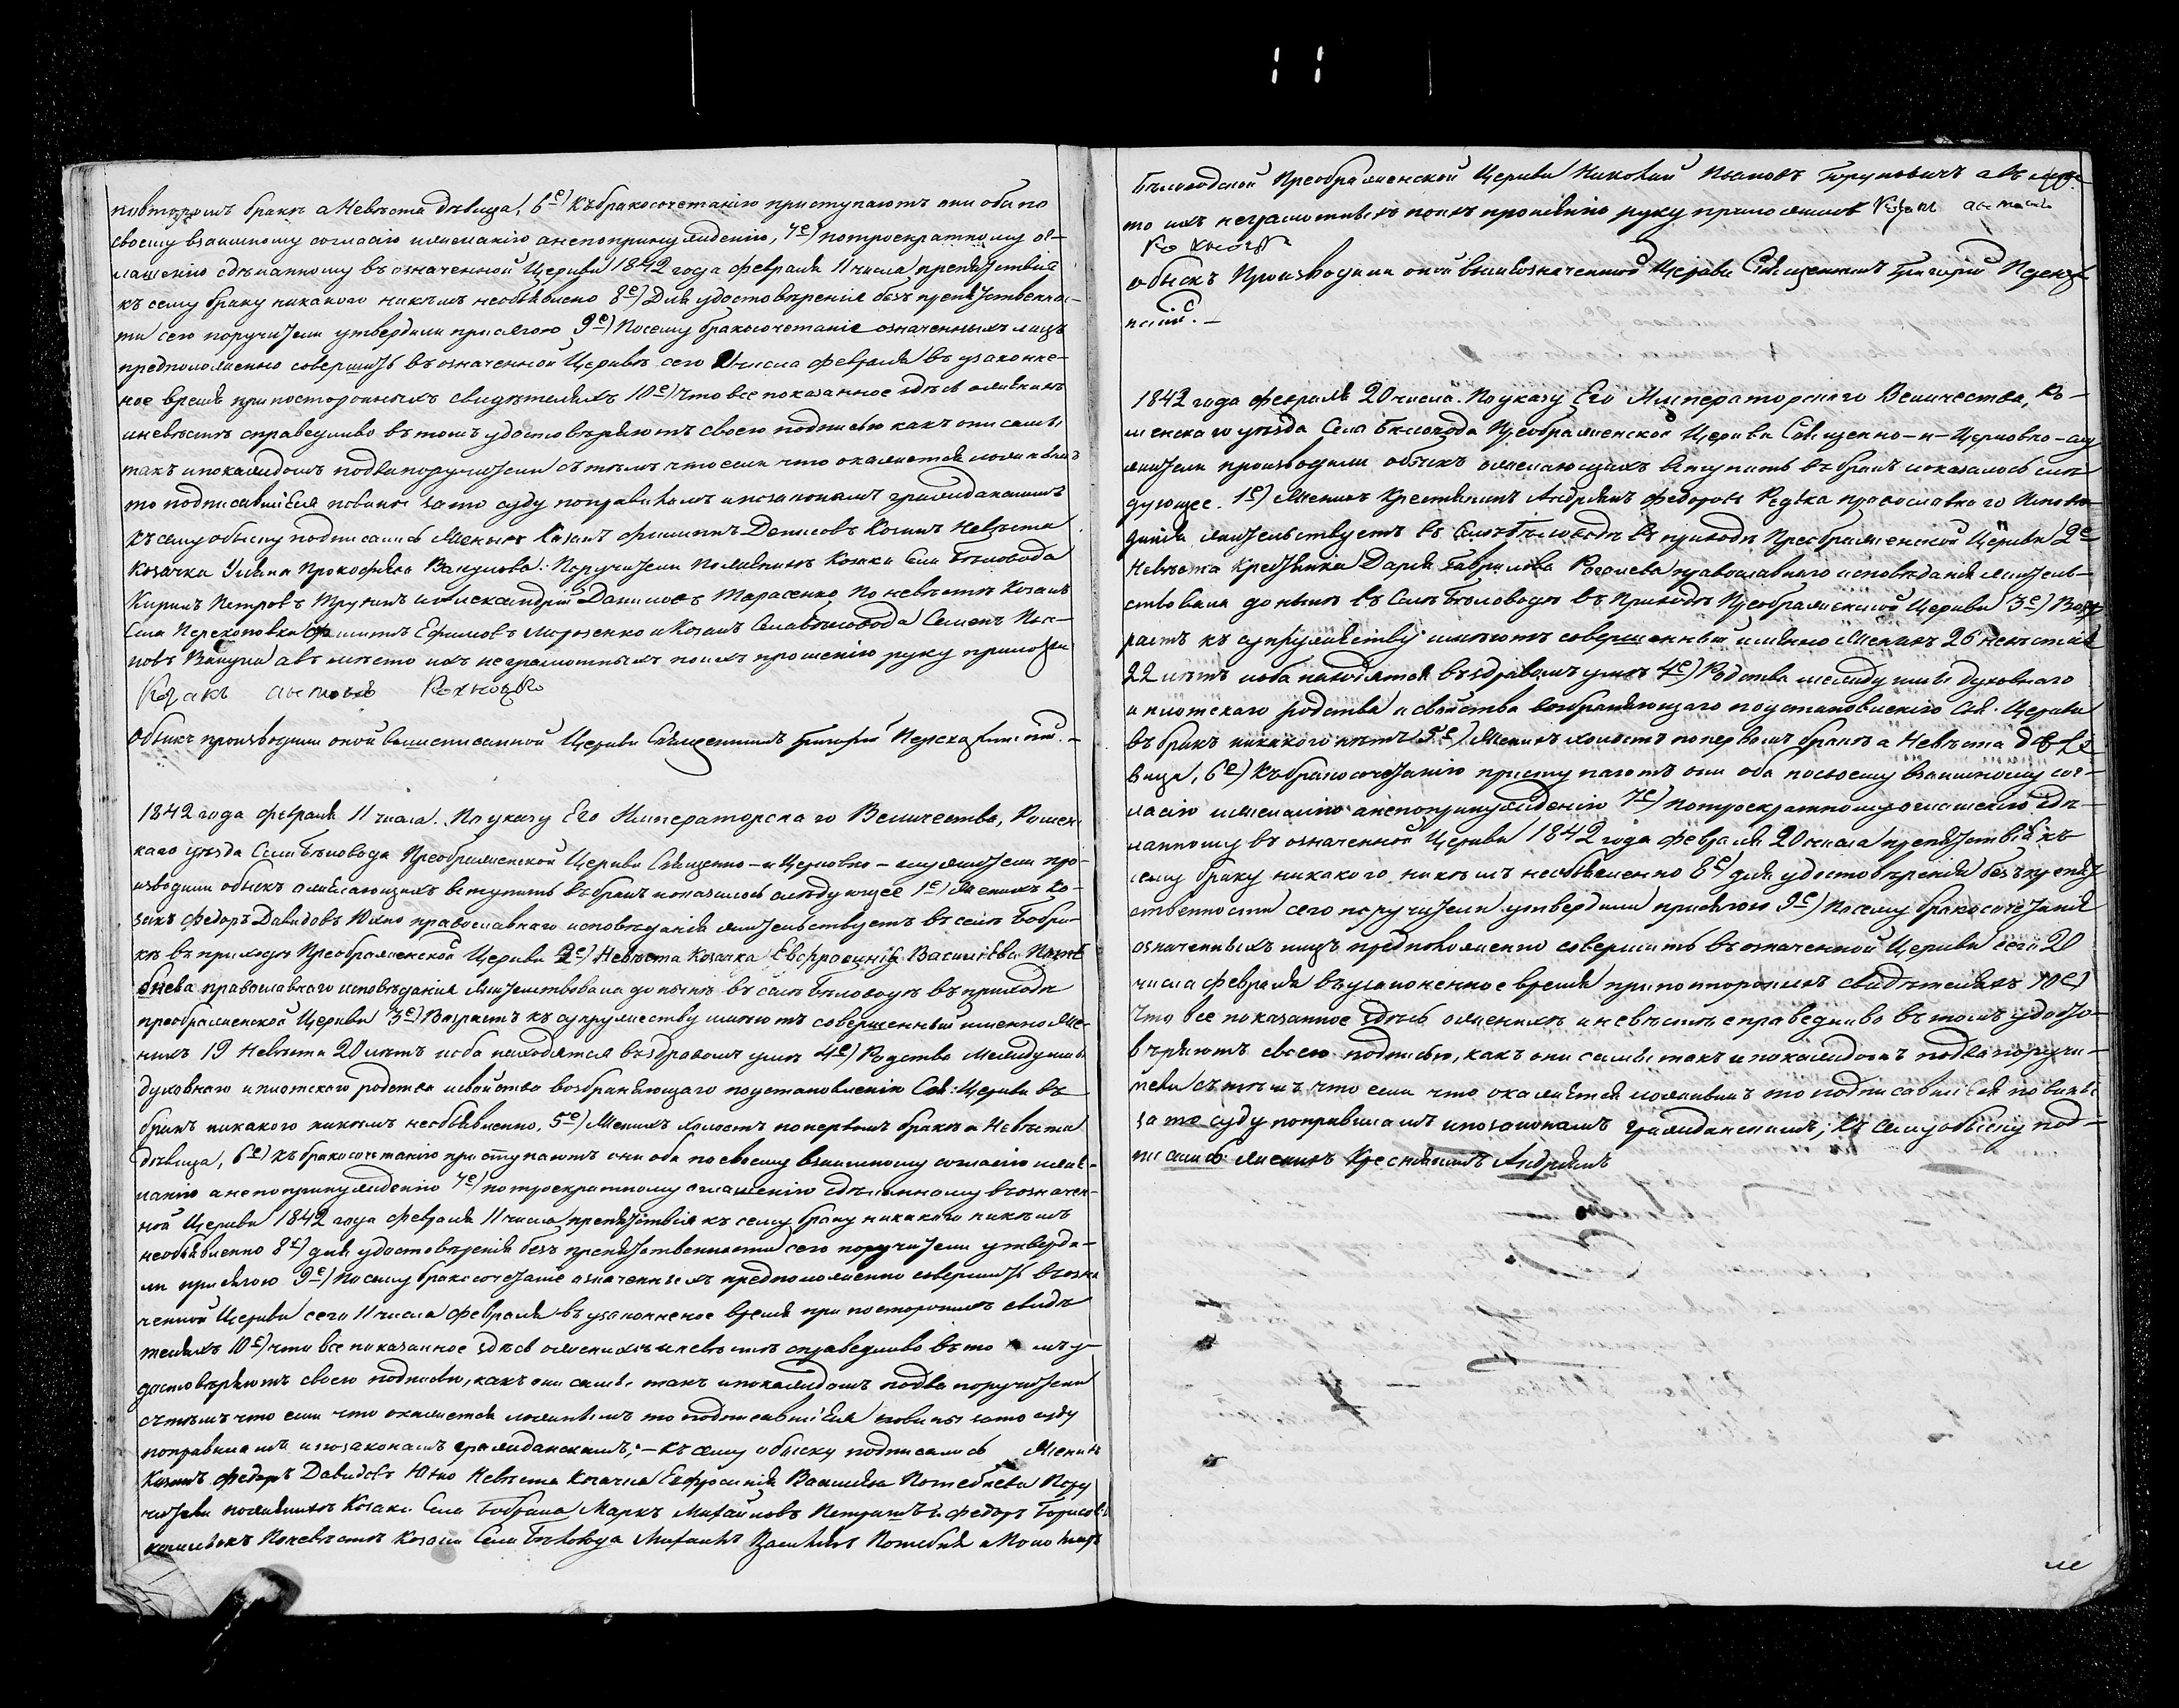 повторомъ бракѣ а Невѣста дѣвица, 6е) Къ бракосочетанію приступаютъ они оба по
своему взаимному согласію и желанію а непопринужденію, 7е) потроекратному ог-
лашенію сдѣланному въ означенной Церкви 1842 года февраля 11 числа препятствія
къ сему браку никакого никѣмъ необъявлено 8е) Для удостовѣренія безъ препятственнос-
ти сего поручители утвердили присягою 9е) Посему бракосочетаніе означенныхъ лицъ
предположенно совершить въ означенной Церквѣ сего числа февраля въ узаконне-
ное время при постороннихъ свидѣтеляхъ 10е) что все показанное здѣсь о женихѣ
и невѣстѣ справедливо въ томъ удостовѣряютъ своею подписью какъ они сами
такъ и по каждомъ по два поручители съ тѣмъ что если что окажется ложнымъ
то подписавшіеся повинны за то суду по правиламъ и по законамъ гражданскимъ
Къ сему обыску подписались Женихъ Козакъ Филиппъ Денисовъ Невѣста
Козачка Уліяна Прокофіева Вакулова. Поручители По женихѣ Козаки Села Бѣловода
Кирилъ Петровъ и Александрій Даниловъ Тарасенко По невѣстѣ Козакъ
Села Перекоповки Филиппъ Ефимовъ Морозенко и Козакъ Села Бѣловода Семенъ
Вакула а въ мѣсто ихъ неграмотныхъ по ихъ прошенію руку приложилъ
Козакъ
Обыскъ производили оной вышеписанной Церкви Священникъ Григорій
1842 года февраля 11 числа. По указу Его Императорскаго Величества, Ромен-
каго уѣзда Села Бѣловода Преображенской Церкви Священно-и-Церковно-служители про-
изводили обыскъ о желающихъ вступить въ бракъ и оказалось слѣдующее 1е) Женихъ Ко-
закъ Федоръ Давидовъ Юхно православнаго исповѣданія жительствуетъ въ селѣ Бобри-
кѣ въ приходѣ Преображенской Церкви 2е) Невѣста Козачка Евфросинія Василіева Поте-
бнева православнаго исповѣданія жительствовала до нынѣ въ селѣ Бѣловодѣ въ приходѣ
преображенской Церкви 3е) Возрастъ къ супружеству имѣютъ совершенный именно Же-
нихъ 19 Невѣста 20 лѣтъ и оба находятся въ здравомъ умѣ 4е) Родства между ними
духовнаго и плотскаго родства и свойства возбраняющаго по установленію Свя: Церкви въ
бракъ никакого никѣмъ необъявленно, 5е) Женихъ холостъ по первомъ бракѣ а Невѣста
дѣвица, 6е) къ бракосочетанію приступаютъ они оба по своему взаимному согласію и же-
ланію а непопринужденію 7е) по троекратному оглашенію сдѣланному въ означен-
ной Церкви 1842 года февраля 11 числа препятствія къ сему браку никакого никѣмъ
необъявленно 8е) для удостовѣренія безъ препятственности сего поручители утверди-
ли присягою 9е) по сему бракосочетаніе означенныхъ предположенно совершить въ озна
ченной Церкви сего 11 числа февраля въ узаконненое время при постороннихъ свидѣ
теляхъ 10е) что все показанное здѣсь о женихѣ и невѣстѣ справедливо въ томъ у-
достовѣряютъ своею подписью, какъ они сами такъ и по каждомъ по два поручители
съ тѣмъ что если что окажется ложнымъ то подписавшіеся повинны за то суду
по правиламъ и по законамъ гражданскимъ;- къ сему обыску подписались Женихъ
Козакъ Федоръ Давидовъ Юхно Невѣста Козачка Евфросинія Василіева Потебнева Пору
чители по женихѣ Козаки Села Бобрика Маркъ Михайловъ и Федоръ Борисовъ
По невѣстѣ Козаки Села Бѣловода Михаилъ Василіевъ Потебня
Бѣловодской Преображенской Церкви Николай а въ мѣс-
то ихъ неграмотныхъ по ихъ прошенію руку приложилъ Козакъ
обыскъ Производили оной вышеозначенной Церкви Священникъ Григорій
1842 года февраля 20 числа. По указу Его Императорскаго Величества, Ро-
менскаго уѣзда Села Бѣловода Преображенской Церкви Священно-и-Церковно-слу
жители производили обыскъ о желающихъ вступить въ бракъ и оказалось слѣ
дующее. 1е) Женихъ Крестянинъ Андріянъ Федоровъ Редька православнаго Исповѣ-
данія жительствуетъ въ Селѣ Бѣловодѣ въ приходѣ Преображенской Церкви 2е
Невѣста Крестянка Дарія Гаврилова Рогалева православнаго исповѣданія житель-
ствовала до нынѣ въ Селѣ Бѣловодѣ въ Приходѣ Преображенской Церкви 3е) Воз
растъ къ супружеству имѣютъ совершенный именно Женихъ 26 невѣста
22 лѣтъ и оба находятся въ здравомъ умѣ 4е) Родства между ими духовнаго
и плотскаго родства и свойства возбраняющаго по установленію Свя: Церкви
въ бракъ никакого нѣтъ 5е) Женихъ холостъ по первомъ бракѣ а Невѣста дѣ
вица, 6е) Къ бракосочетанію приступаютъ они оба по своему взаимному сог-
ласію и желанію а непопринужденію 7е) по троекратному оглашенію сдѣ-
ланному въ означенной Церкви 1842 года февраля 20 числа препятствія къ
сему браку никакого никѣмъ необъявленно 8е) для удостовѣренія безъ препят
ственности сего поручители утвердили присягою 9е) По сему бракосочетанія
означенныхъ лицъ предположенно совершить въ означенной Церкви сего 20
числа февраля въ узаконенное время при постороннихъ свидѣтеляхъ 10е)
Что все показанное здѣсь о женихѣ и невѣстѣ справедливо въ томъ удосто-
вѣряютъ своею подписью, какъ они сами такъ и по каждомъ по два поручи-
тели съ тѣмъ что если что окажется ложнымъ то подписавшіеся повинны
за то суду по правиламъ и по законамъ гражданскимъ; Къ сему обыску под-
писались женихъ Креснянинъ Андріянъ